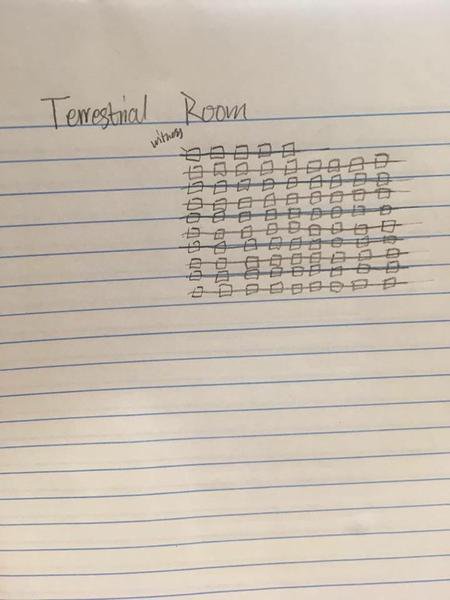 Terrestrial Room
witness